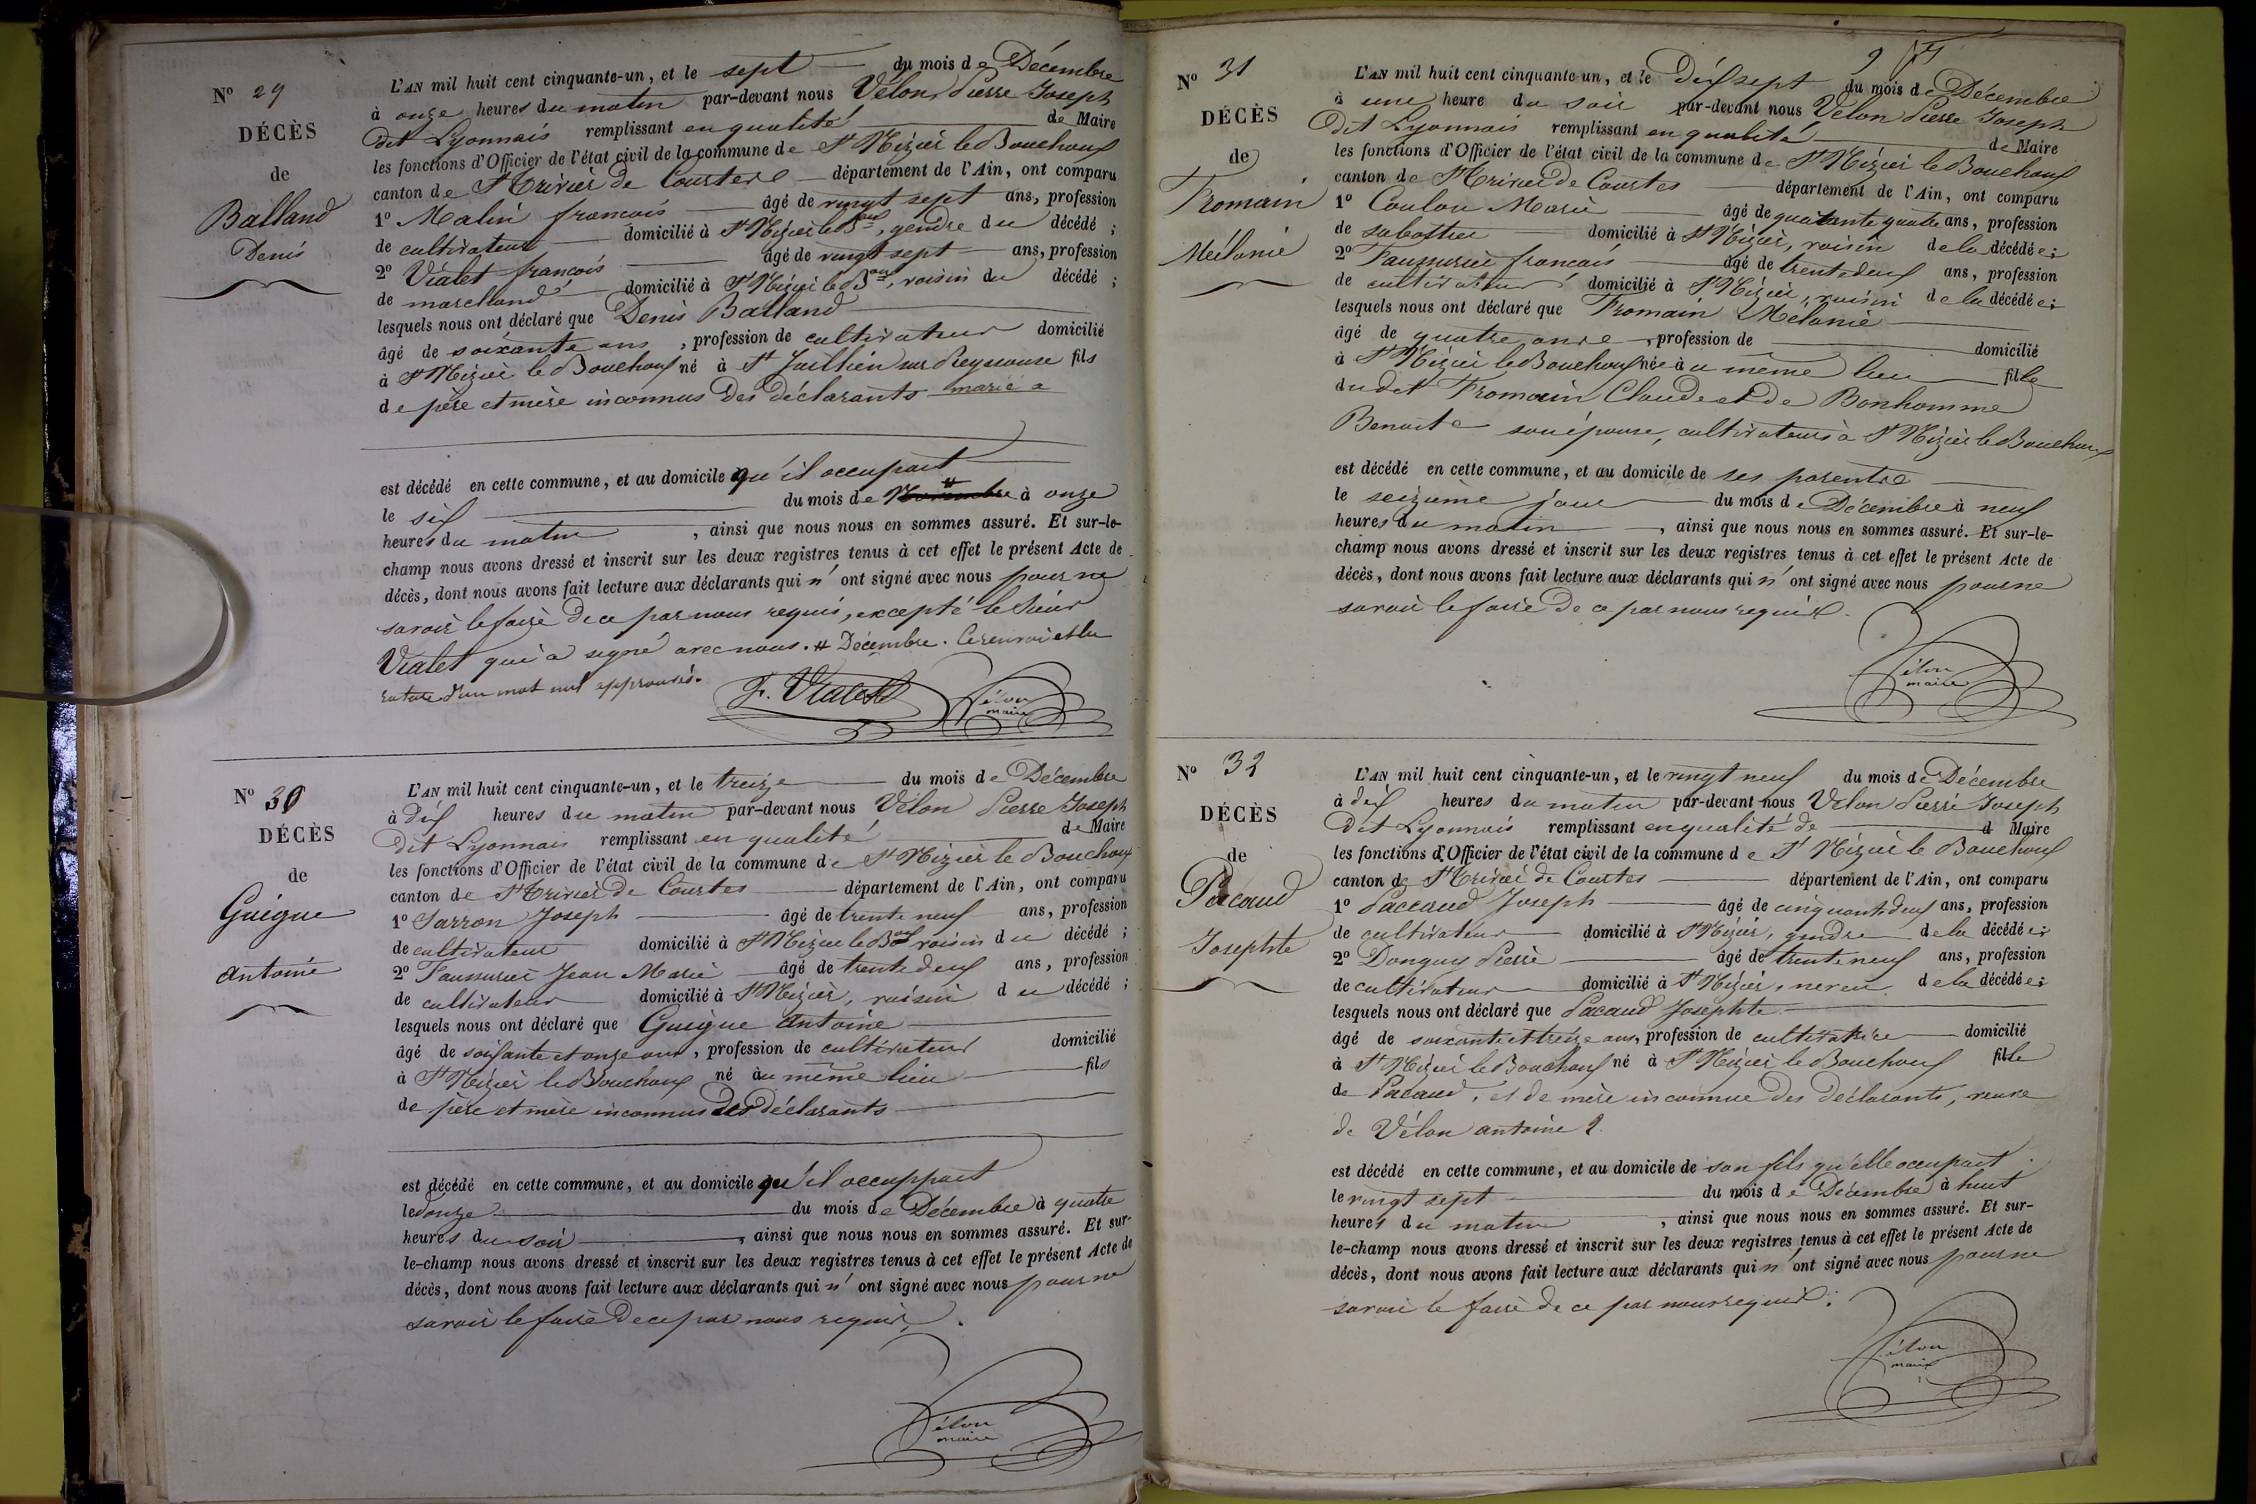 N° 29
DÉCÈS
de
Balland
Denis
L'AN mil huit cent cinquante-un, et le sept du mois de Décembre
à onze heures du matin par-devant nous Vélon Pierre Joseph
dit Lyonnais remplissant en qualité de Maire
les fonctions d'Officier de l'état civil de la commune de St Nizier le Bouchoux
canton de St Trivier de Courtes département de l'Ain, ont comparu
1° Malin francois âgé de vingt sept ans, profession
de cultivateur domicilié à St Nizier le Boux, gendre du décédé ;
2° Vialet françois âgé de vingt sept ans, profession
de marchand domicilié à St Nizier le Boux, voisin du décédé ;
lesquels nous ont déclaré que Denis Balland
âgé de soixante ans, profession de cultivateur domicilié
à St Nizier le Bouchoux né à St Juillien sur Reyssouse fils
de père et mère inconnus des déclarants marié a
est décédé en cette commune, et au domicile qu'il occupait
le six du mois de Novembre à onze
heures du matin, ainsi que nous nous en sommes assuré. Et sur-le-
champ nous avons dressé et inscrit sur les deux registres tenus à cet effet le présent Acte de
décès, dont nous avons fait lecture aux déclarants qui n'ont signé avec nous pour ne
savoir le faire de ce par nous requis, excepté le Sieur
Vialet qui a signé avec nous. # Décembre. Ce renvoi et la
rature d'un mot nul approuvés.
F. Vialet Vélon
maire
N° 30
DÉCÈS
de
Guigue
antoine
L'AN mil huit cent cinquante-un, et le treize du mois de Décembre
à dix heures du matin par-devant nous Vélon Pierre Joseph
dit Lyonnais remplissant en qualité de Maire
les fonctions d'Officier de l'état civil de la commune de St Nizier le Bouchoux
canton de St Trivier de Courtes département de l'Ain, ont comparu
1° Sarron Joseph âgé de trente neuf ans, profession
de cultivateur domicilié à St Nizier le Boux voisin du décédé ;
2° Faussurier Jean Marie âgé de trente deux ans, profession
de cultivateur domicilié à St Nizier, voisin du décédé ;
lesquels nous ont déclaré que Guigue antoine
âgé de soixante et onze ans, profession de cultivateur domicilié
à St Nizier le Bouchoux né au même lieu fils
de père et mère inconnus des déclarants
est décédé en cette commune, et au domicile qu'il occuppait
le douze du mois de Décembre à quatre
heures du soir, ainsi que nous nous en sommes assuré. Et sur-
le-champ nous avons dressé et inscrit sur les deux registres tenus à cet effet le présent Acte de
décès, dont nous avons fait lecture aux déclarants qui n'ont signé avec nous pour ne
savoir le faire de ce par nous requis.
Vélon
maire
N° 31
DÉCÈS
de
Fromain
Mélanie
L'AN mil huit cent cinquante-un, et le dix sept du mois de Décembre
à une heure du soir par-devant nous Vélon Pierre Joseph
dit Lyonnais remplissant en qualité de Maire
les fonctions d'Officier de l'état civil de la commune de St Nizier le Bouchoux
canton de St Trivier de Courtes département de l'Ain, ont comparu
1° Coulon Marie âgé de quarante quatre ans, profession
de sabottier domicilié à St Nizier, voisin de la décédée ;
2° Faussurier francois âgé de trente deux ans, profession
de cultivateur domicilié à St Nizier, voisin de la décédée ;
lesquels nous ont déclaré que Fromain Mélanie
âgé de quatre ans, profession de domicilié
à St Nizier le Bouchoux née au même lieu fille
dudit Fromain Claude et de Bonhomme
Benoite son épouse, cultivateurs à St Nizier le Bouchoux
est décédé en cette commune, et au domicile de ses parents
le seizième jour du mois de Décembre à neuf
heures du matin, ainsi que nous nous en sommes assuré. Et sur-le-
champ nous avons dressé et inscrit sur les deux registres tenus à cet effet le présent Acte de
décès, dont nous avons fait lecture aux déclarants qui n'ont signé avec nous pour ne
savoir le faire de ce par nous requis.
Vélon
maire
N° 32
DÉCÈS
de
Pacaud
Josephte
L'AN mil huit cent cinquante-un, et le vingt neuf du mois de Décembre
à dix heures du matin par-devant nous Vélon Pierre Joseph
dit Lyonnais remplissant en qualité de d Maire
les fonctions d'Officier de l'état civil de la commune de St Nizier le Bouchoux
canton de St Trivier de Courtes département de l'Ain, ont comparu
1° Paccaud Joseph âgé de cinquante deux ans, profession
de cultivateur domicilié à St Nizier, gendre de la décédée ;
2° Donguy Pierre âgé de trente neuf ans, profession
de cultivateur domicilié à St Nizier, neveu de la décédée ;
lesquels nous ont déclaré que Pacaud Josephte
âgé de soixante et treize ans, profession de cultivatrice domicilié
à St Nizier le Bouchoux né à St Nizier le Bouchoux fille
de Pacaud, et de mère inconnue des déclarants, veuve
de Vélon antoine
est décédé en cette commune, et au domicile de son fils qu'elle occupait
le vingt sept du mois de Décembre à huit
heures du matin, ainsi que nous nous en sommes assuré. Et sur-
le-champ nous avons dressé et inscrit sur les deux registres tenus à cet effet le présent Acte de
décès, dont nous avons fait lecture aux déclarants qui n'ont signé avec nous pour ne
savoir le faire de ce par nous requis.
Vélon
maire